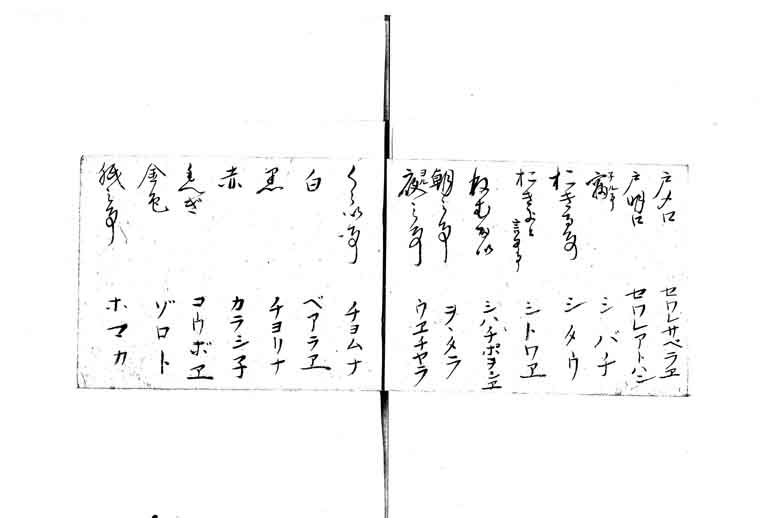 戸〆ロ セワレサベラヱ
戸明ロ セワレアトバシ
シバチ
おきる事 シタウ
おきよと言事 シトワヱ
ねむたい シバチポヲシヱ
朝之事 ヲヽタラ
夜之事 ウヱチヤラ
くらい事 チョムナ
白 ベアラヱ
黒 チヨリナ
赤 カラシ子
もゑぎ コウボヱ
金色 ゾロト
紙之事 ホマカ